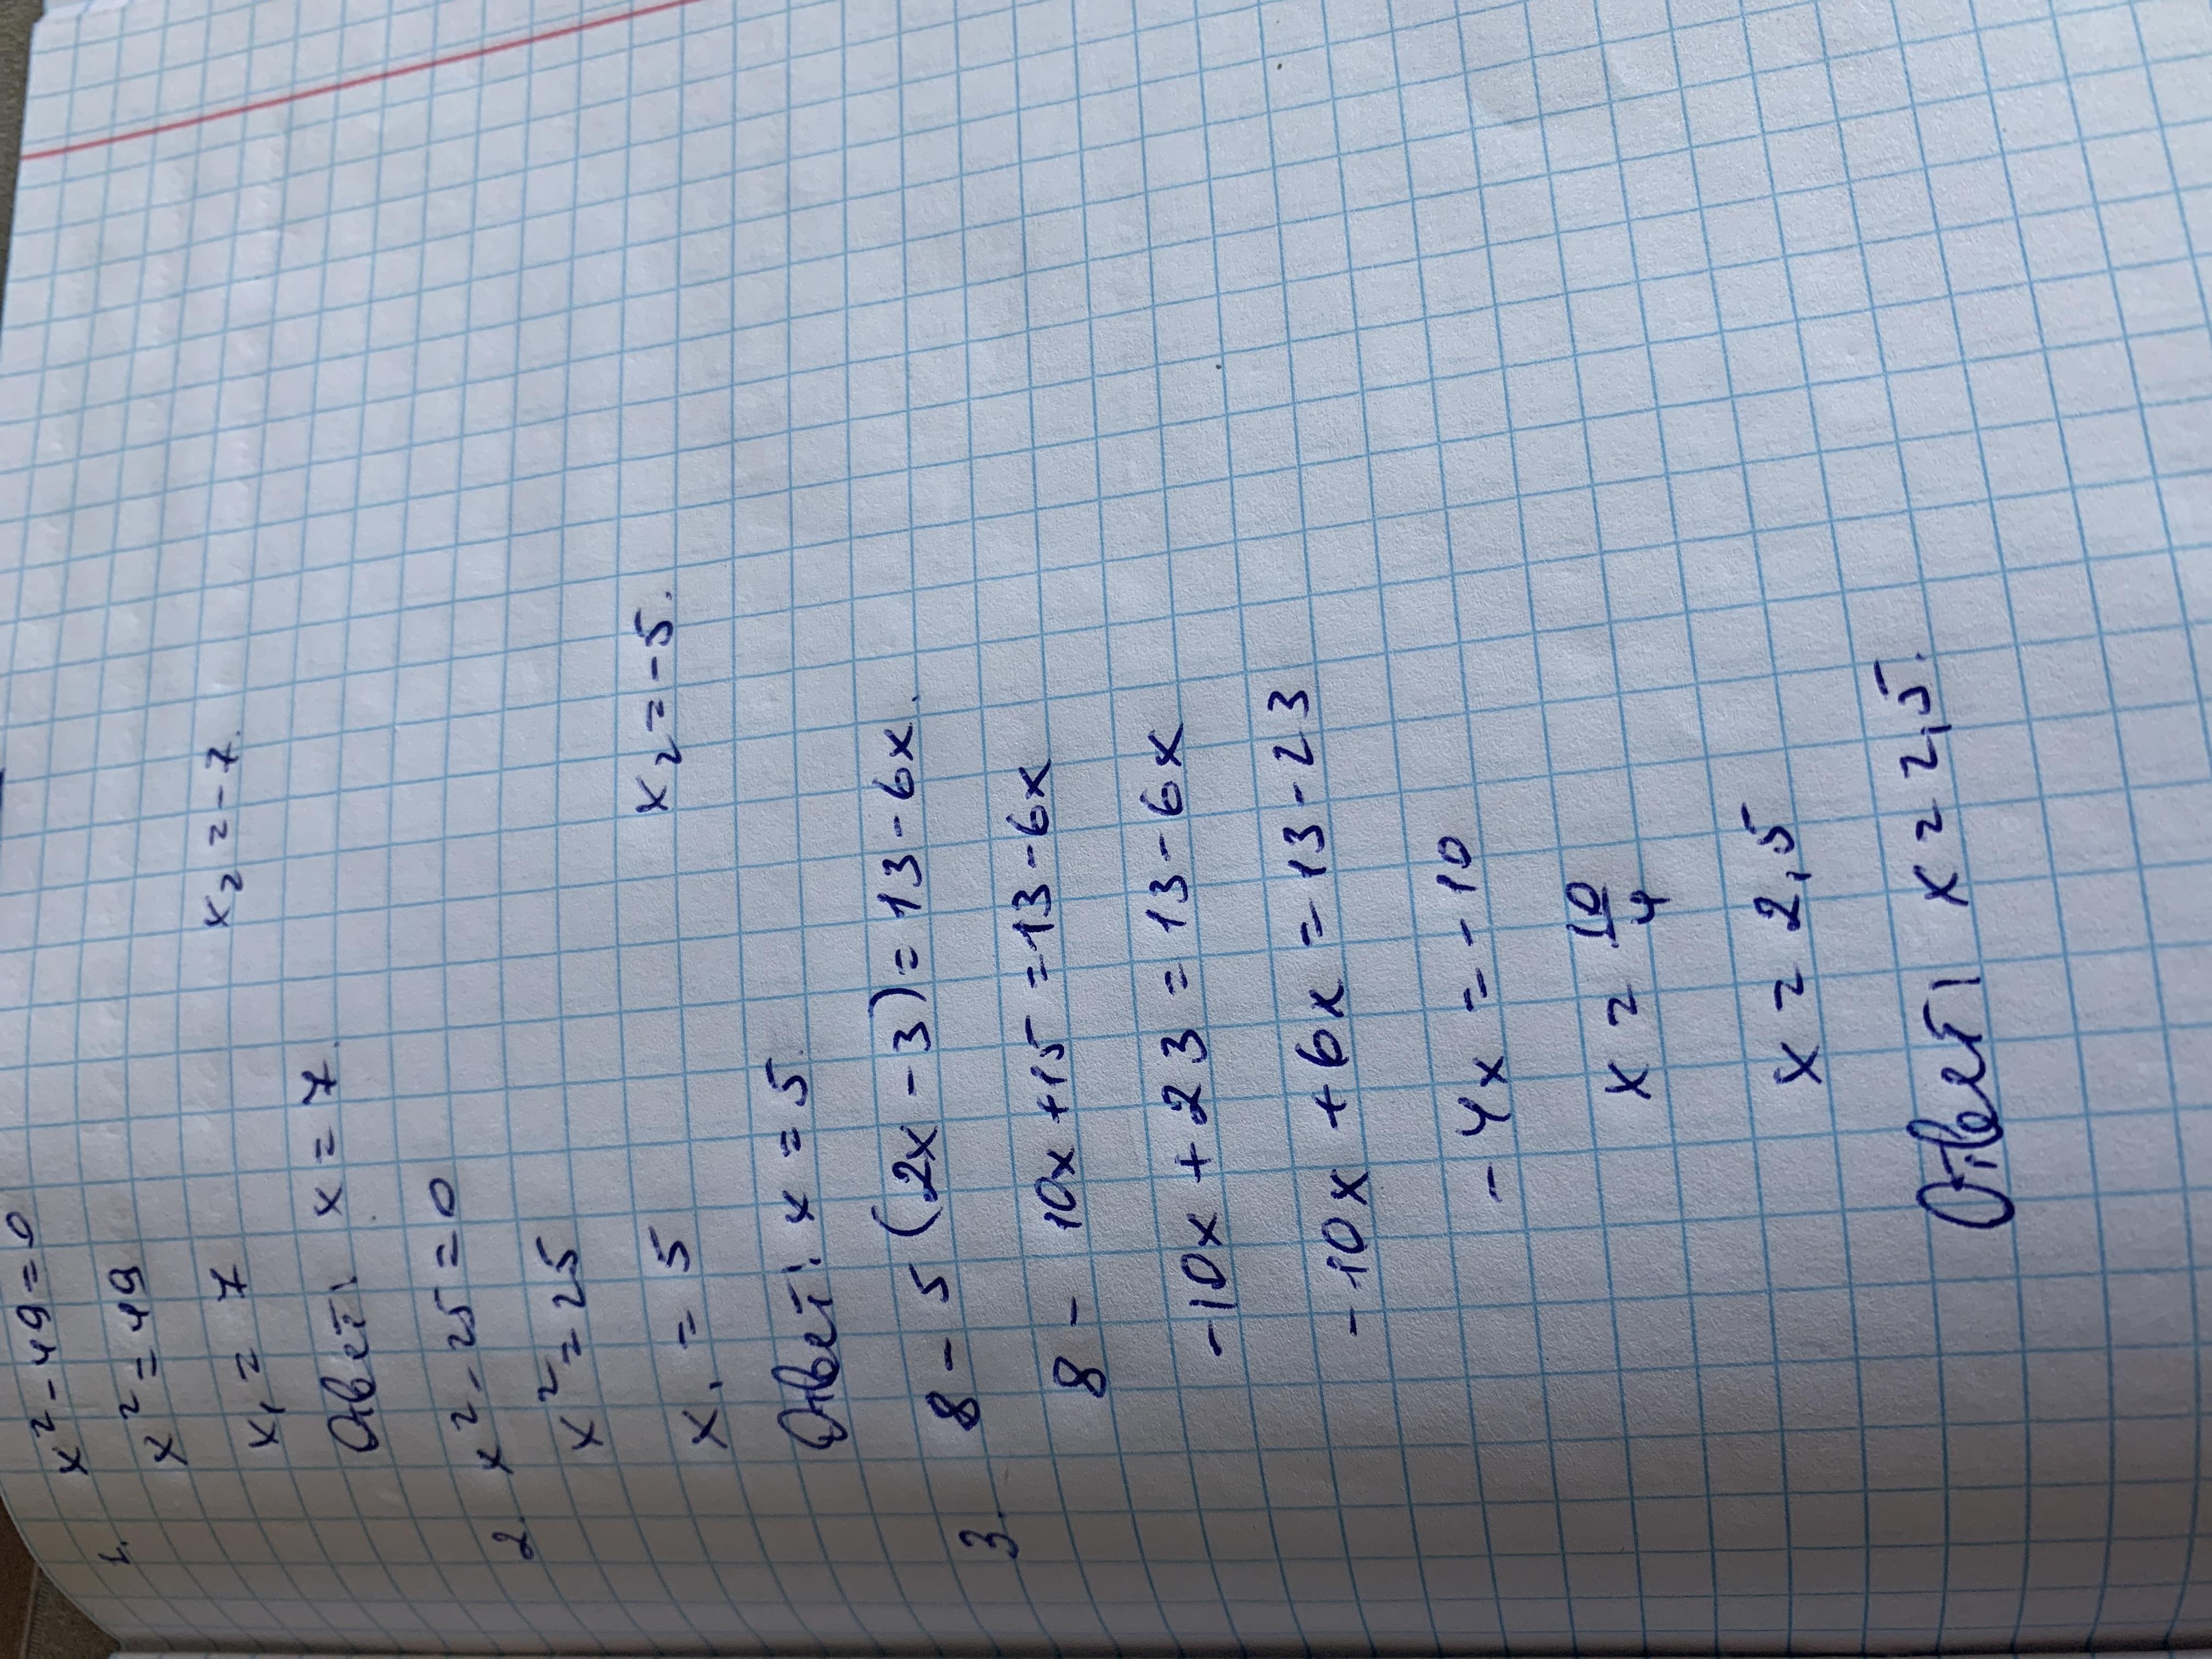 1. x² - 49 = 0
x² = 49
x₁ = 7 x₂ = -7.
Ответ: x = 7.
2. x² - 25 = 0
x² = 25
x₁ = 5 x₂ = -5.
Ответ: x = 5.
3. 8 - 5 (2x - 3) = 13 - 6x.
8 - 10x + 15 = 13 - 6x
-10x + 23 = 13 - 6x
-10x + 6x = 13 - 23
-4x = -10
x = 10/4
x = 2,5
Ответ: x = 2,5.